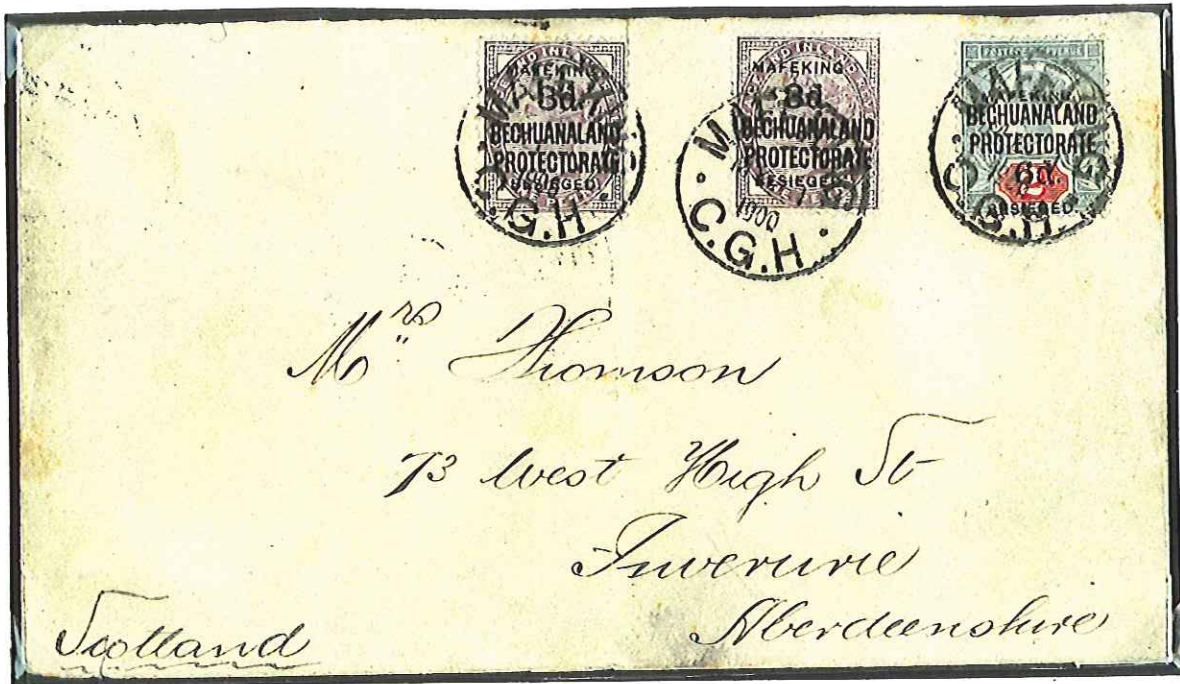 MAFEKING 3d. BECHUANALAND PROTECTORATE BESIEGED.
MAFEKING 3d. BECHUANALAND PROTECTORATE BESIEGED.
POSTAGE REVENUE MAFEKING, BECHUANALAND PROTECTORATE 6d. BESIEGED.
C.G.H.
MAFEKING 1900 C.G.H.
MAFEKING C.G.H.
Mrs Thomson
73 West High St
Inverurie
Aberdeenshire
Scotland